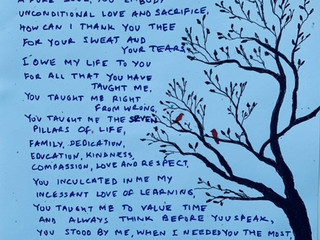 A PURE SOUL, YOU EMBODY
UNCONDITIONAL LOVE AND SACRIFICE,
HOW CAN I THANK YOU THEE
FOR YOUR SWEAT AND
YOUR TEARS
I OWE MY LIFE TO YOU
FOR ALL THAT YOU HAVE
TAUGHT ME,
YOU TAUGHT ME RIGHT
FROM WRONG,
YOU TAUGHT ME THE SEVEN
PILLARS OF, LIFE,
FAMILY, DEDICATION,
EDUCATION, KINDNESS,
COMPASSION, LOVE AND RESPECT.
YOU INCULCATED IN ME MY
INCESSANT LOVE OF LEARNING,
YOU TAUGHT ME TO VALUE TIME
AND ALWAYS THINK BEFORE YOU SPEAK,
YOU STOOD BY ME, WHEN I NEEDED YOU THE MOST,